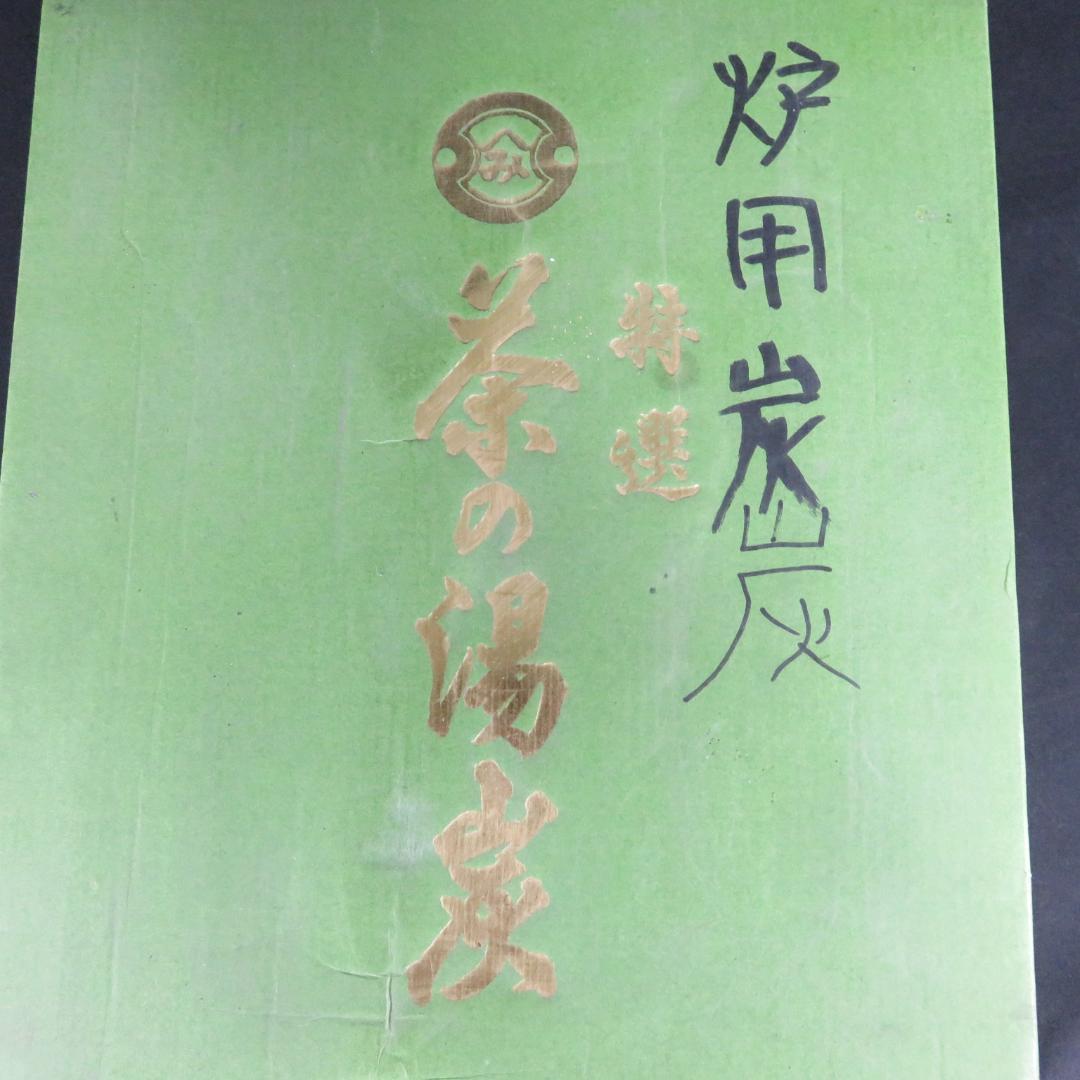 炉用炭
山灰
特選
茶の湯炭